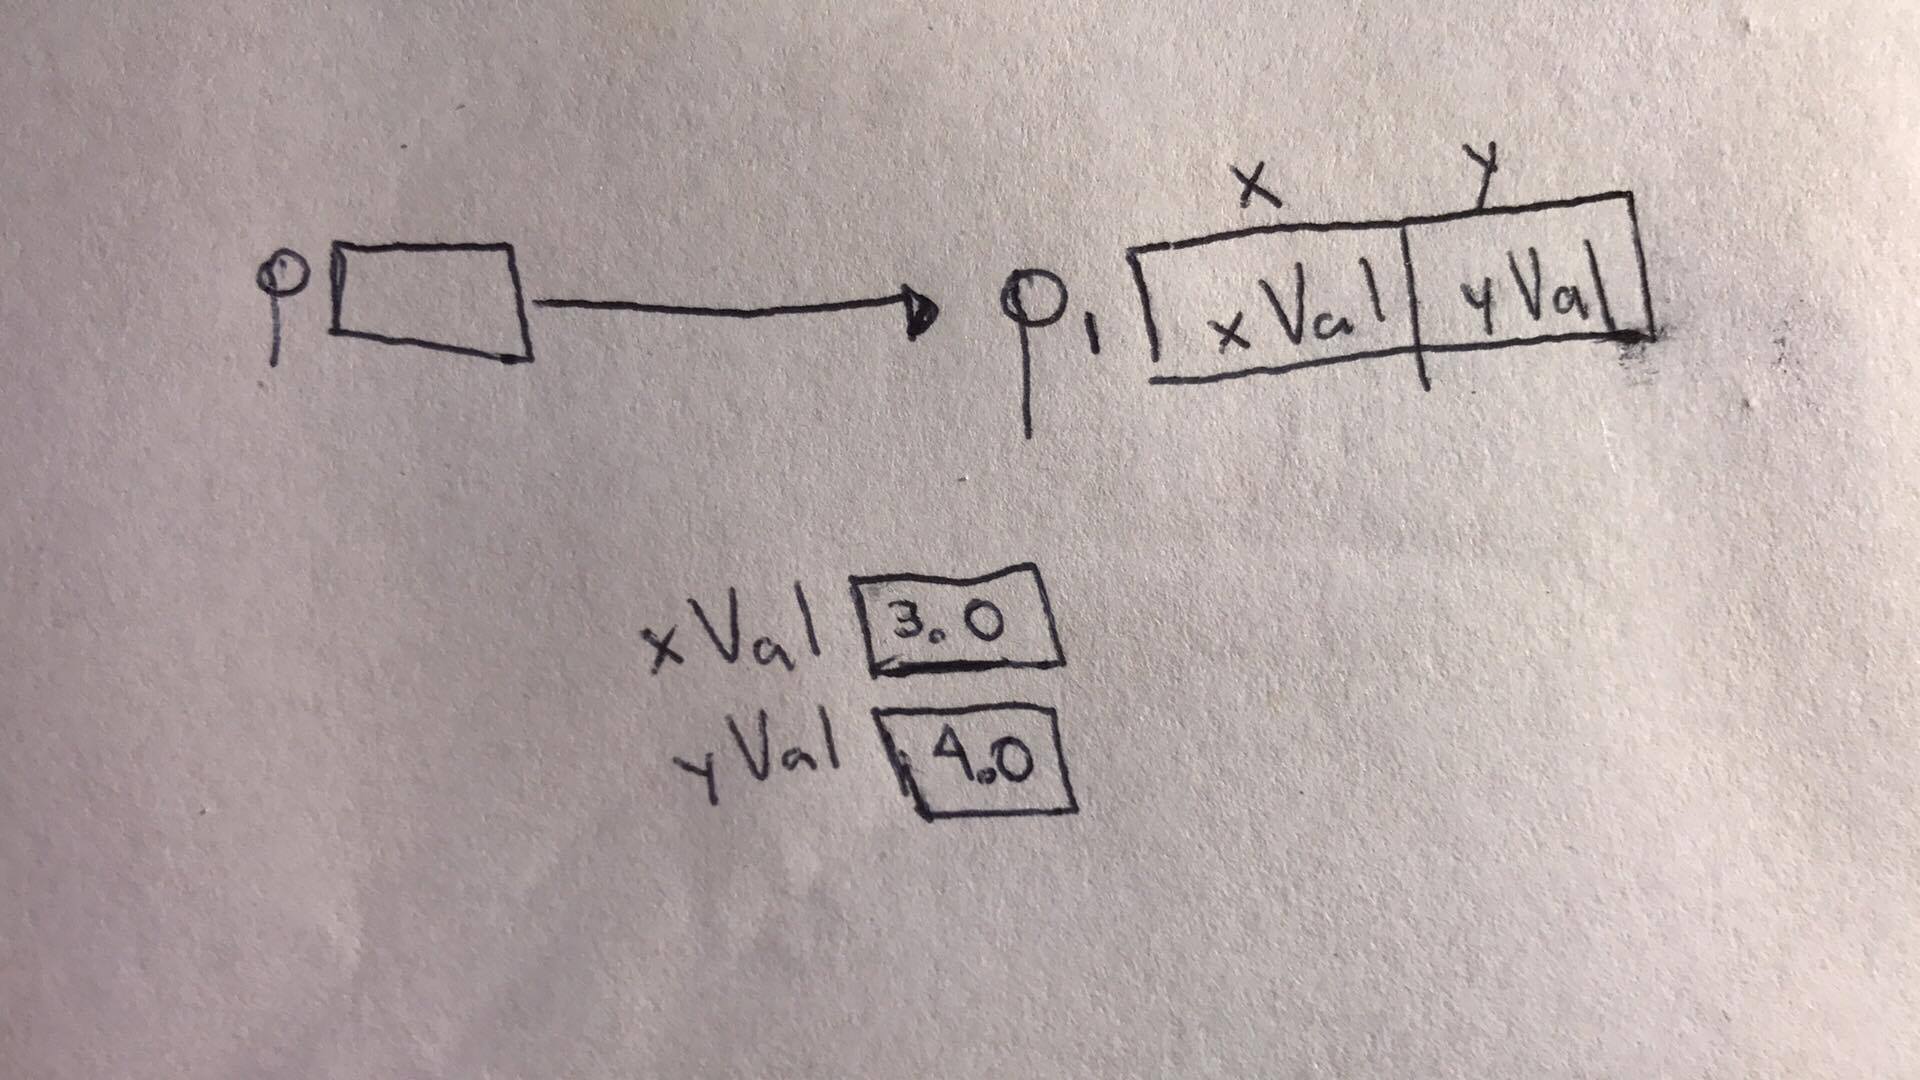 x y
p p1 xVal yVal
xVal 3.0
yVal 4.0